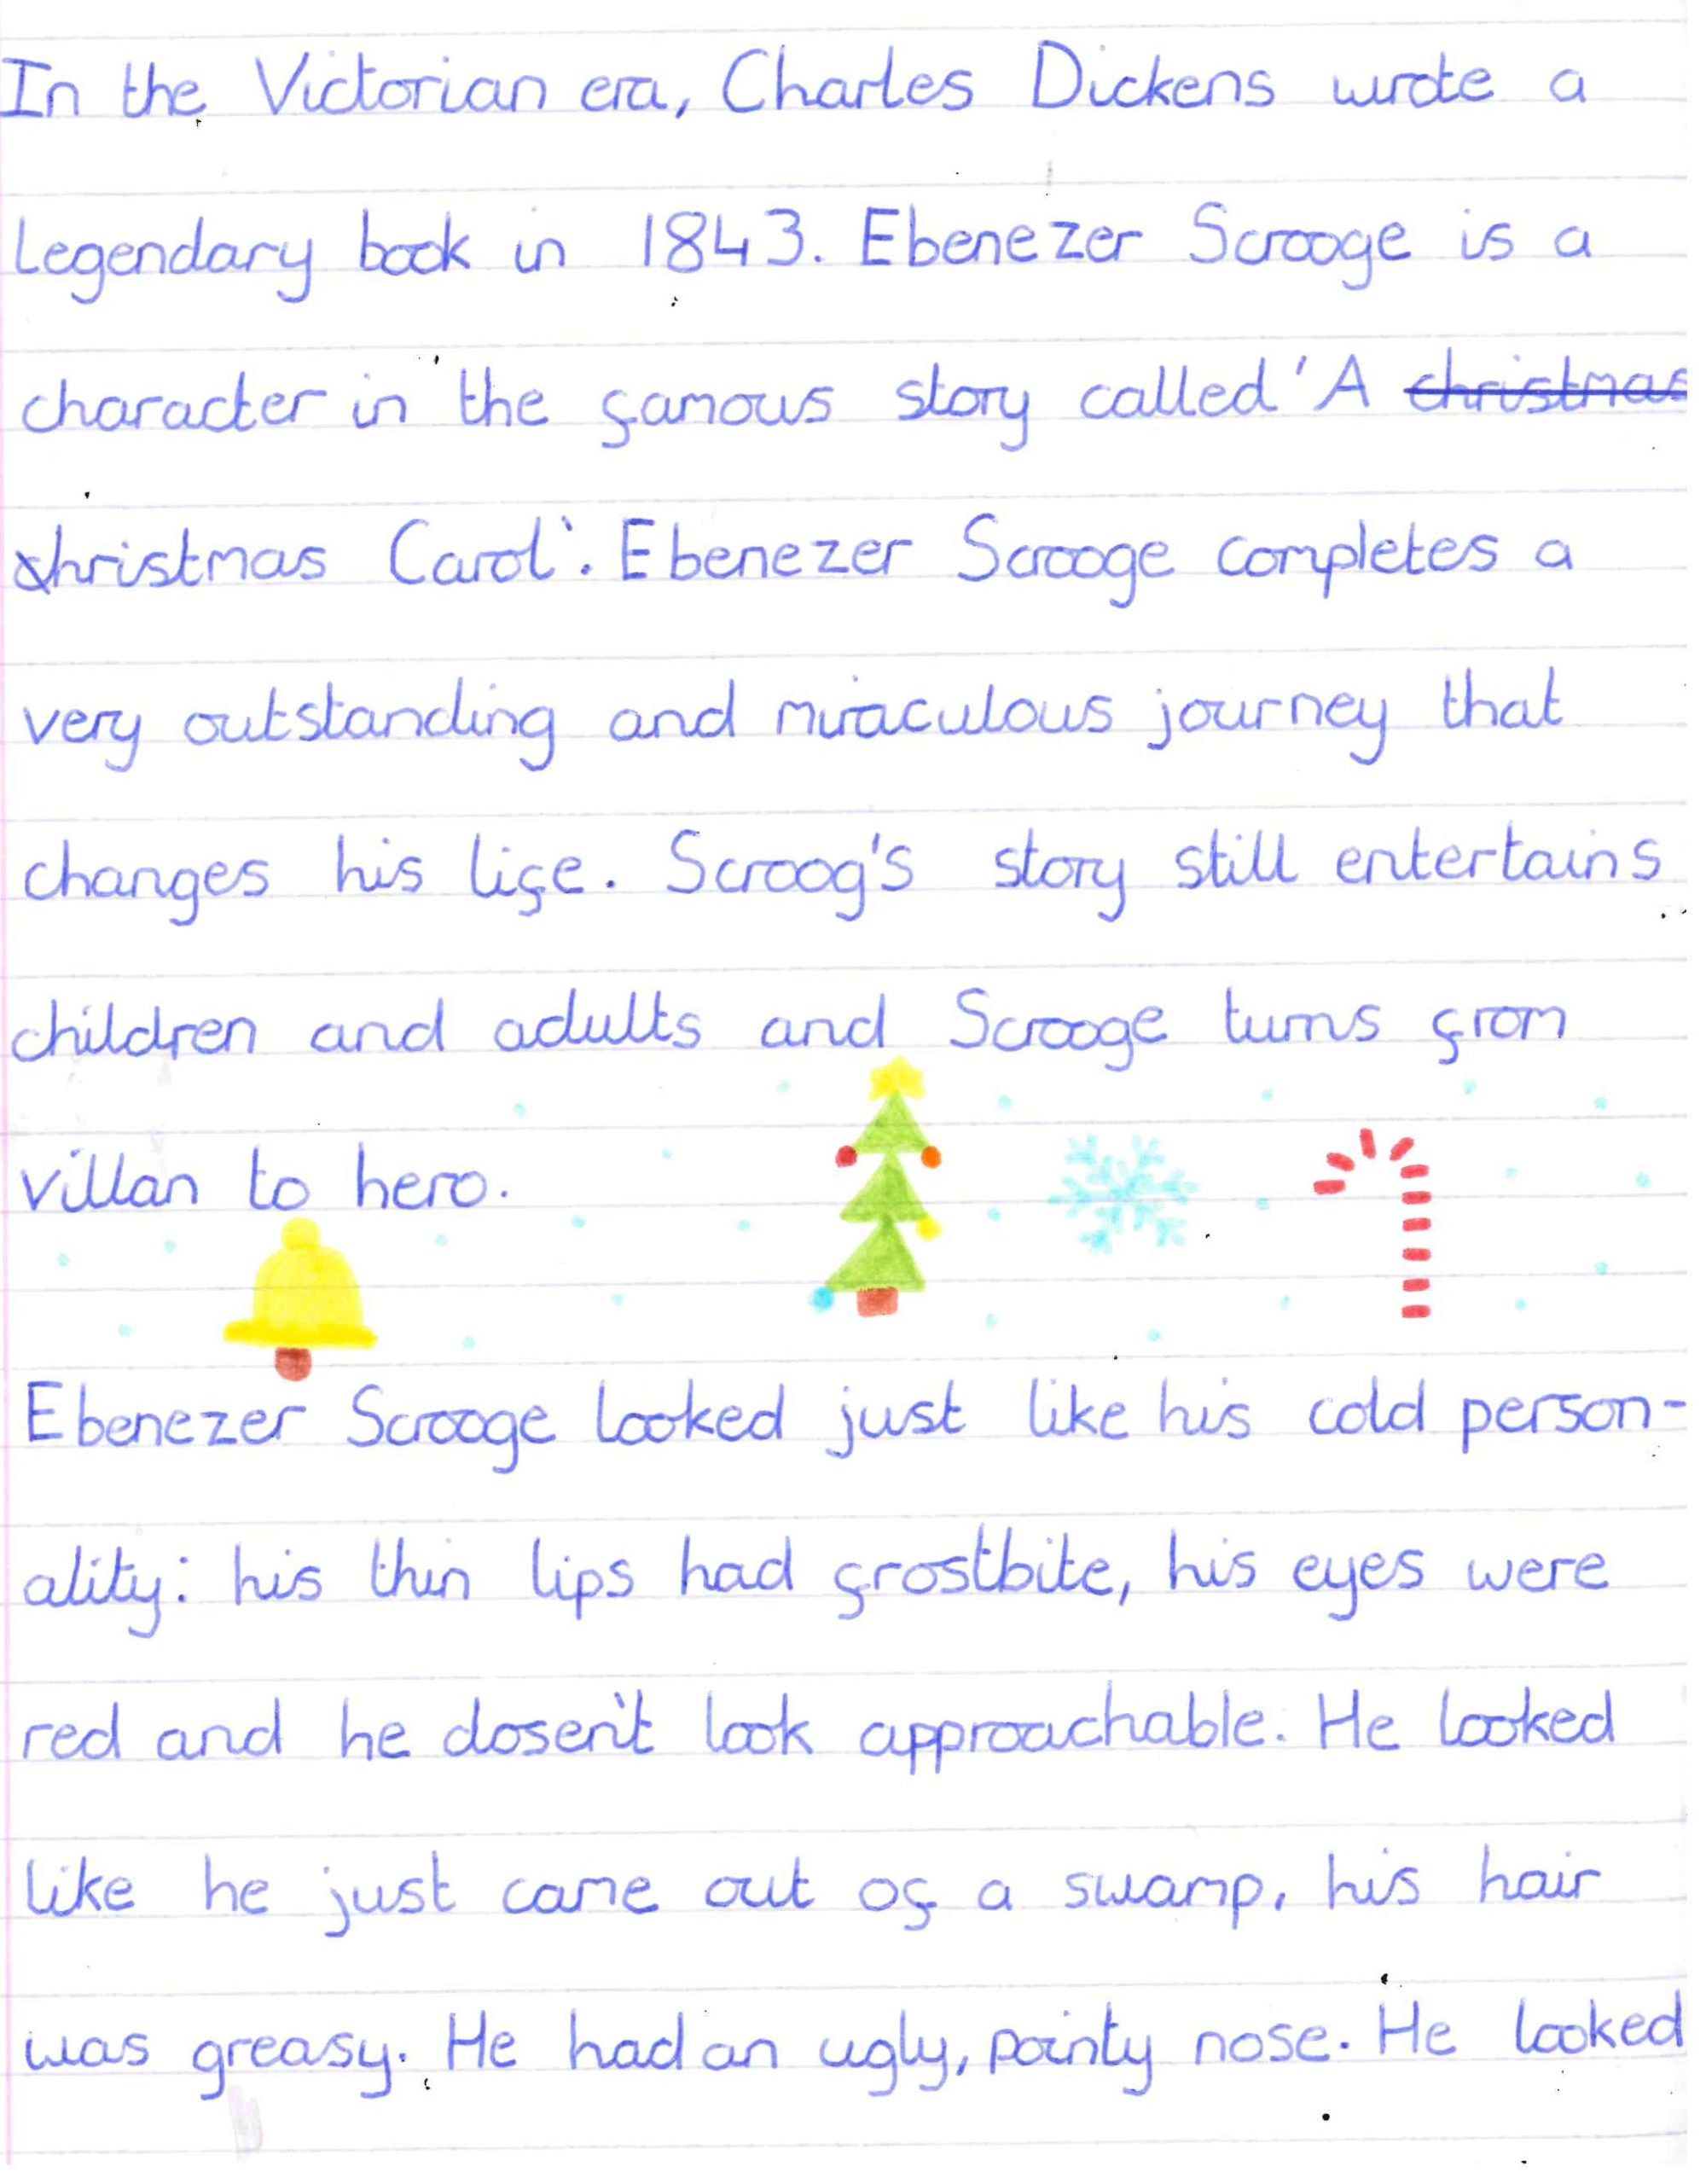 In the Victorian era, Charles Dickens wrote a
legendary book in 1843. Ebenezer Scrooge is a
character in the famous story called 'A christmas
christmas Carol'. Ebenezer Scrooge completes a
very outstanding and miraculous journey that
changes his life. Scroog's story still entertains
children and adults and Scrooge turns from
villan to hero.
Ebenezer Scrooge looked just like his cold person-
ality: his thin lips had frostbite, his eyes were
red and he dosen't look approachable. He looked
like he just came out of a swamp, his hair
was greasy. He had an ugly, pointy nose. He looked